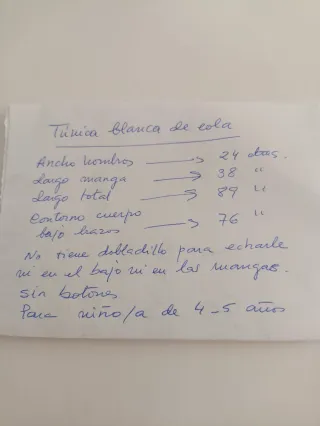 Túnica blanca de cola
Ancho hombros → 24 cms.
Largo manga → 38 "
Largo total → 89 "
Contorno cuerpo
bajo brazos → 76 "
No tiene dobladillo para echarle
ni en el bajo ni en las mangas.
Sin botones
Para niño/a de 4-5 años